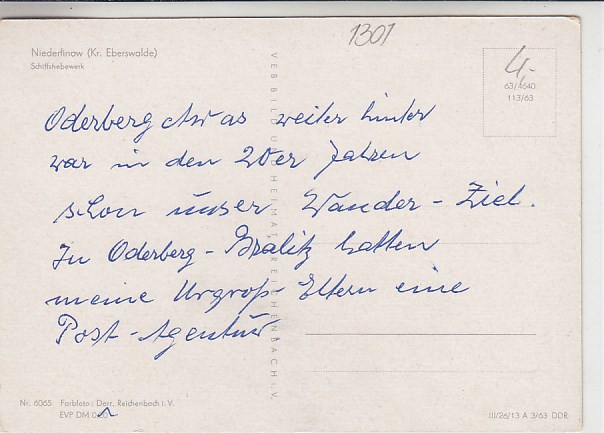 1301
Niederfinow (Kr. Eberswalde)
Schiffshebewerk
4,-
63/4640
113/63
Oderberg etwas weiter hinter
war in den 20er Jahren
schon unser Wander - Ziel.
In Oderberg - Bralitz hatten
meine Urgroß - Eltern eine
Post - Agentur
VEB BILD UND HEIMAT REICHENBACH I. V.
Nr. 6065 Farbfoto: Darr, Reichenbach i. V.
EVP DM 0,20
III/26/13 A 3/63 DDR